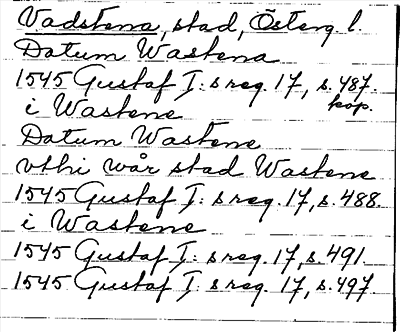 Vadstena, stad, Österg l.
Datum Wastena
1545 Gustaf I:s reg. 17, s. 487.
kop.
i Wastene
Datum Wastene
vthi wår stad Wastene
1545 Gustaf I:s reg. 17, s. 488.
i Wastene
1545 Gustaf I:s reg. 17, s. 491.
1545 Gustaf I:s reg. 17, s. 497.